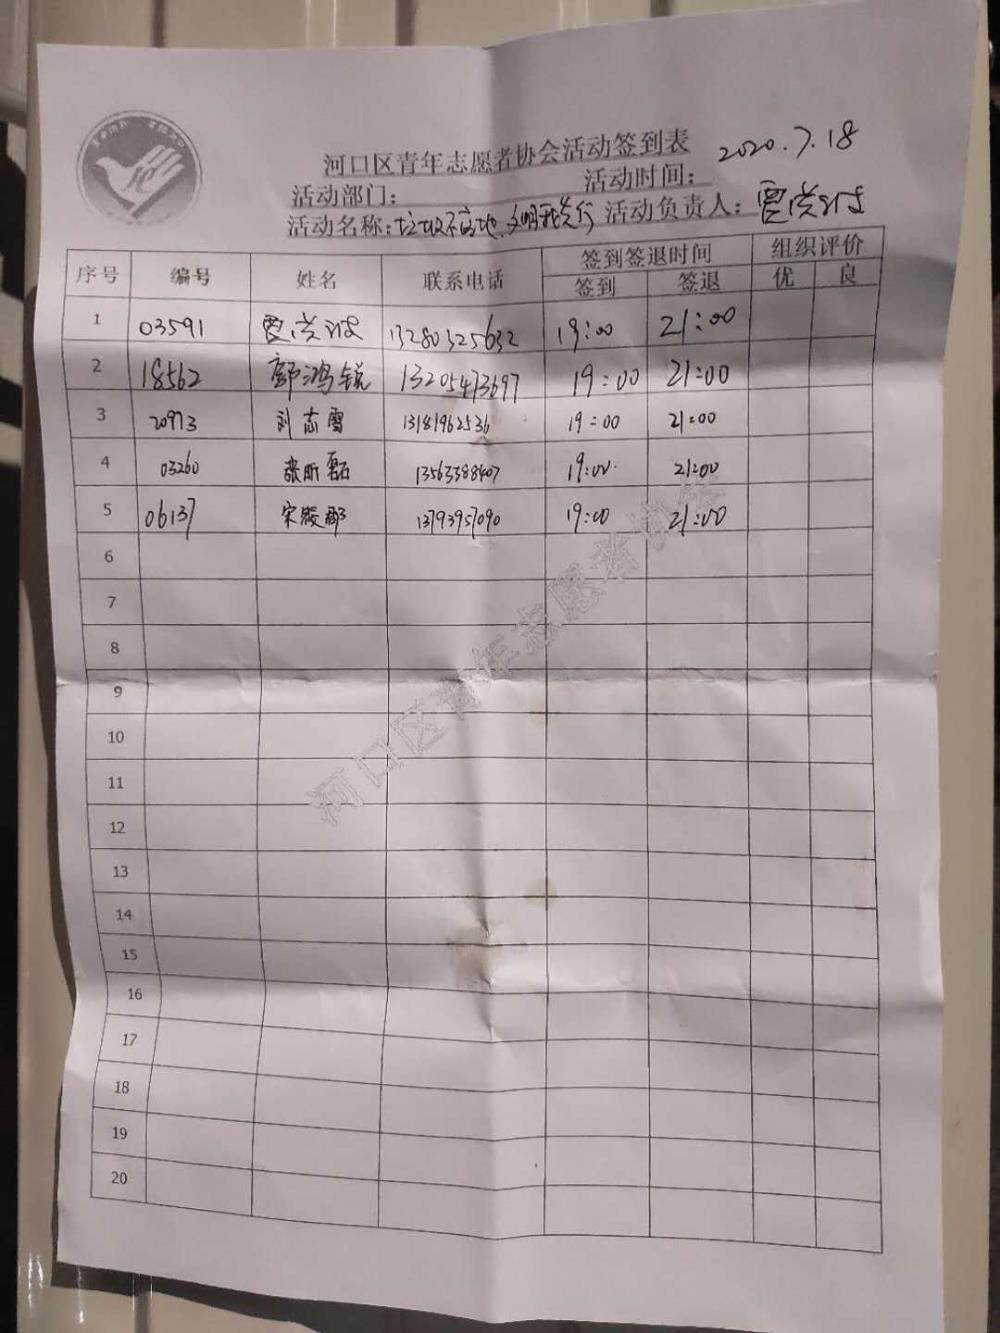 河口区青年志愿者协会活动签到表
活动部门： 活动时间： 2020.7.18
活动名称：垃圾不落地、文明我先行 活动负责人：
序号 编号 姓名 联系电话 签到签退时间 组织评价
签到 签退 优 良
1 03591 13280325632 19:00 21:00
2 18562 郭鸿锐 13205473697 19:00 21:00
3 20973 刘志雪 13181962536 19:00 21:00
4 03260 张昕磊 13563388407 19:00 21:00
5 06137 宋凌郡 13793957090 19:00 21:00
6
7
8
9
10
11
12
13
14
15
16
17
18
19
20
河口区青年志愿者协会